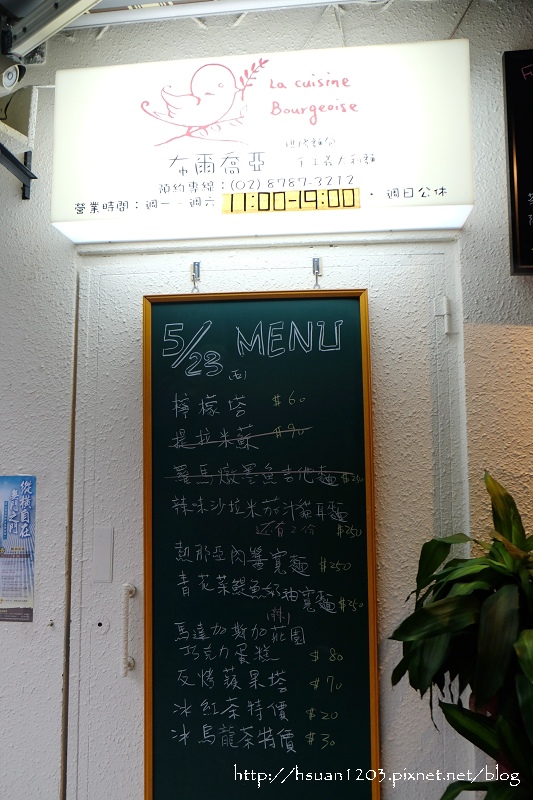 La cuisine
Bourgeoise
布爾喬亞
手工義大利麵
預約專線：(02) 8787-3212
營業時間：週一~週六 11:00-19:00 · 週日公休
5/23 (五) MENU
檸檬塔 $60
提拉米蘇 $90
羅馬燉墨魚吉他麵
辣味沙拉米茄汁貓耳麵
還有2份 $250
熱那亞肉醬寬麵 $250
青花菜鯷魚奶油寬麵 $250
馬達加斯加莊園
巧克力蛋糕 $80
反烤蘋果塔 $70
冰紅茶特價 $20
冰烏龍茶特價 $30
縱橫自在
http://hsuan1203.pixnet.net/blog